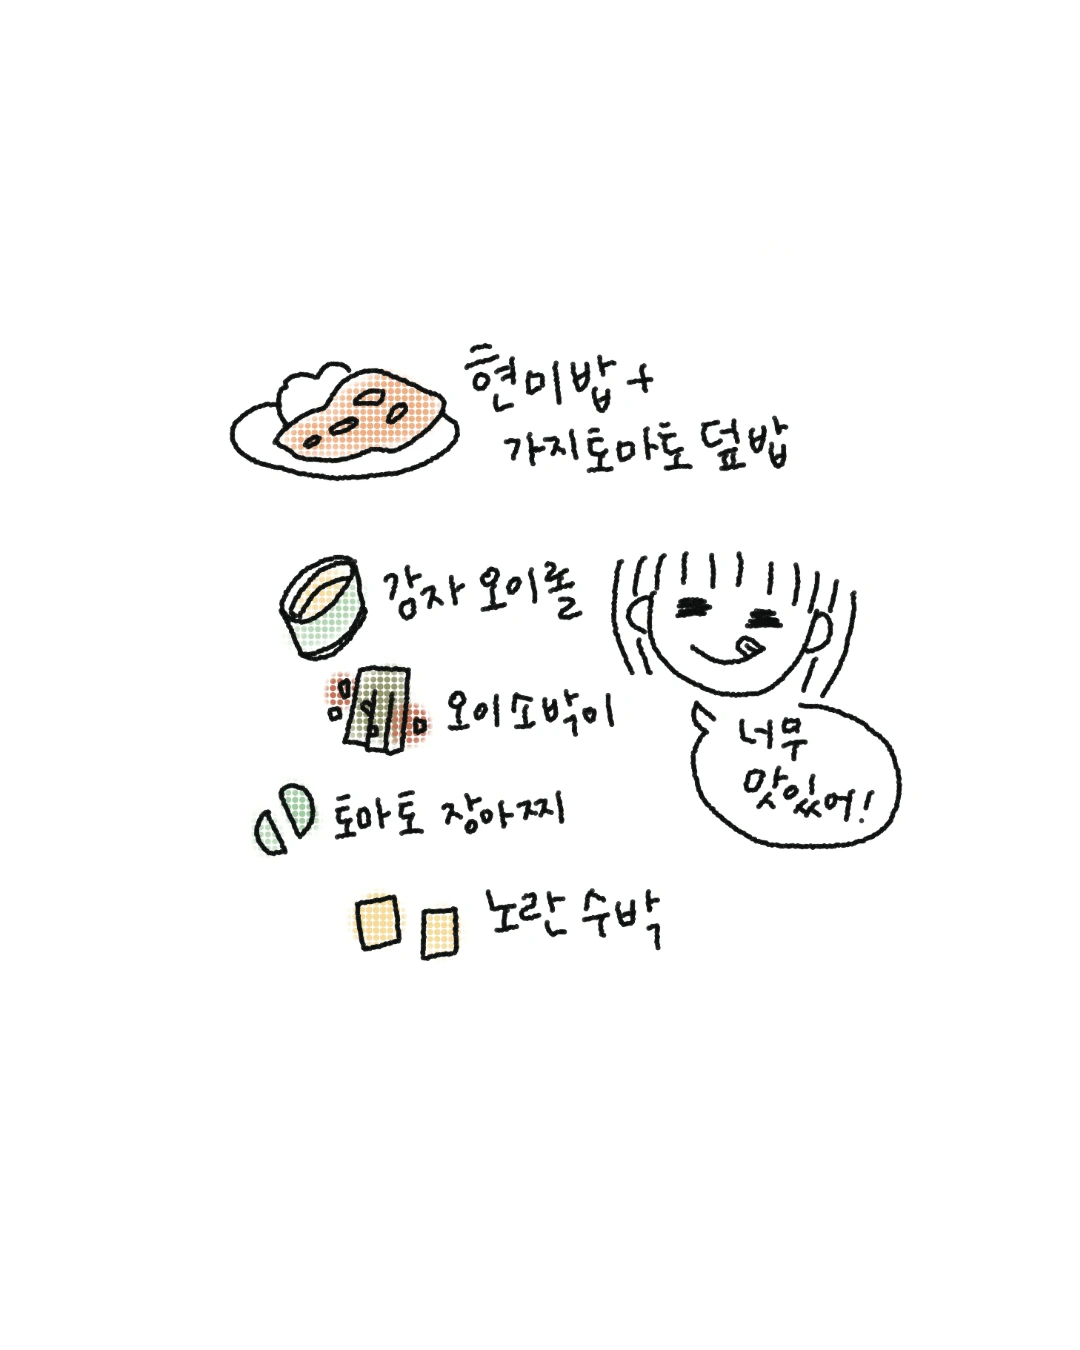 현미밥 +
가지토마토 덮밥
감자 오이롤
오이소박이
토마토 장아찌
노란 수박
너무
맛있어!